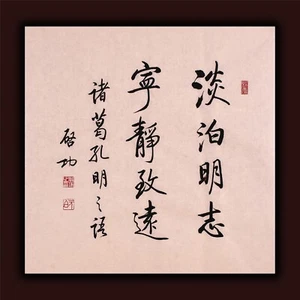 淡泊明志
寧静致遠
諸葛孔明之語
啓功